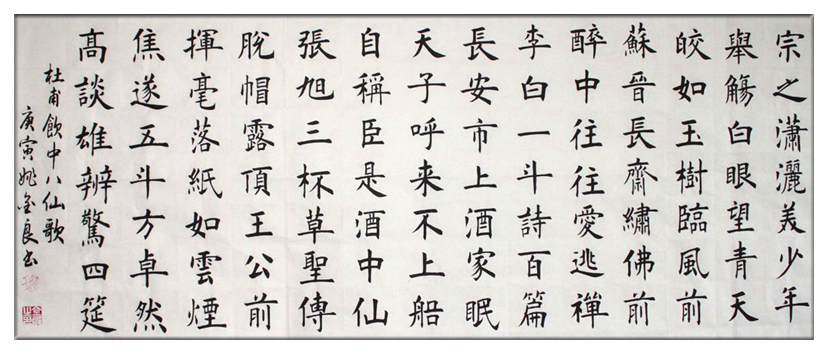 宗之瀟灑美少年
舉觴白眼望青天
皎如玉樹臨風前
蘇晉長齋繡佛前
醉中往往愛逃禪
李白一斗詩百篇
長安市上酒家眠
天子呼来不上船
自稱臣是酒中仙
張旭三杯草聖傳
脫帽露頂王公前
揮毫落紙如雲煙
焦遂五斗方卓然
高談雄辨驚四筵
杜甫飲中八仙歌
庚寅姚金良書